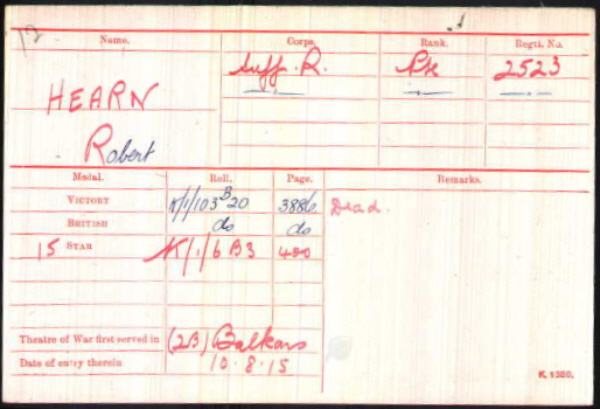 12
Name. Corps. Rank. Regtl. No.
HEARN Suff. R. Pte 2523
Robert
Medal. Roll. Page. Remarks.
VICTORY K/1/103 B 20 3886. Dead.
BRITISH do do
15 STAR K/1/6 B3 400
Theatre of War first served in (2B) Balkans
Date of entry therein 10.8.15
K. 1380.